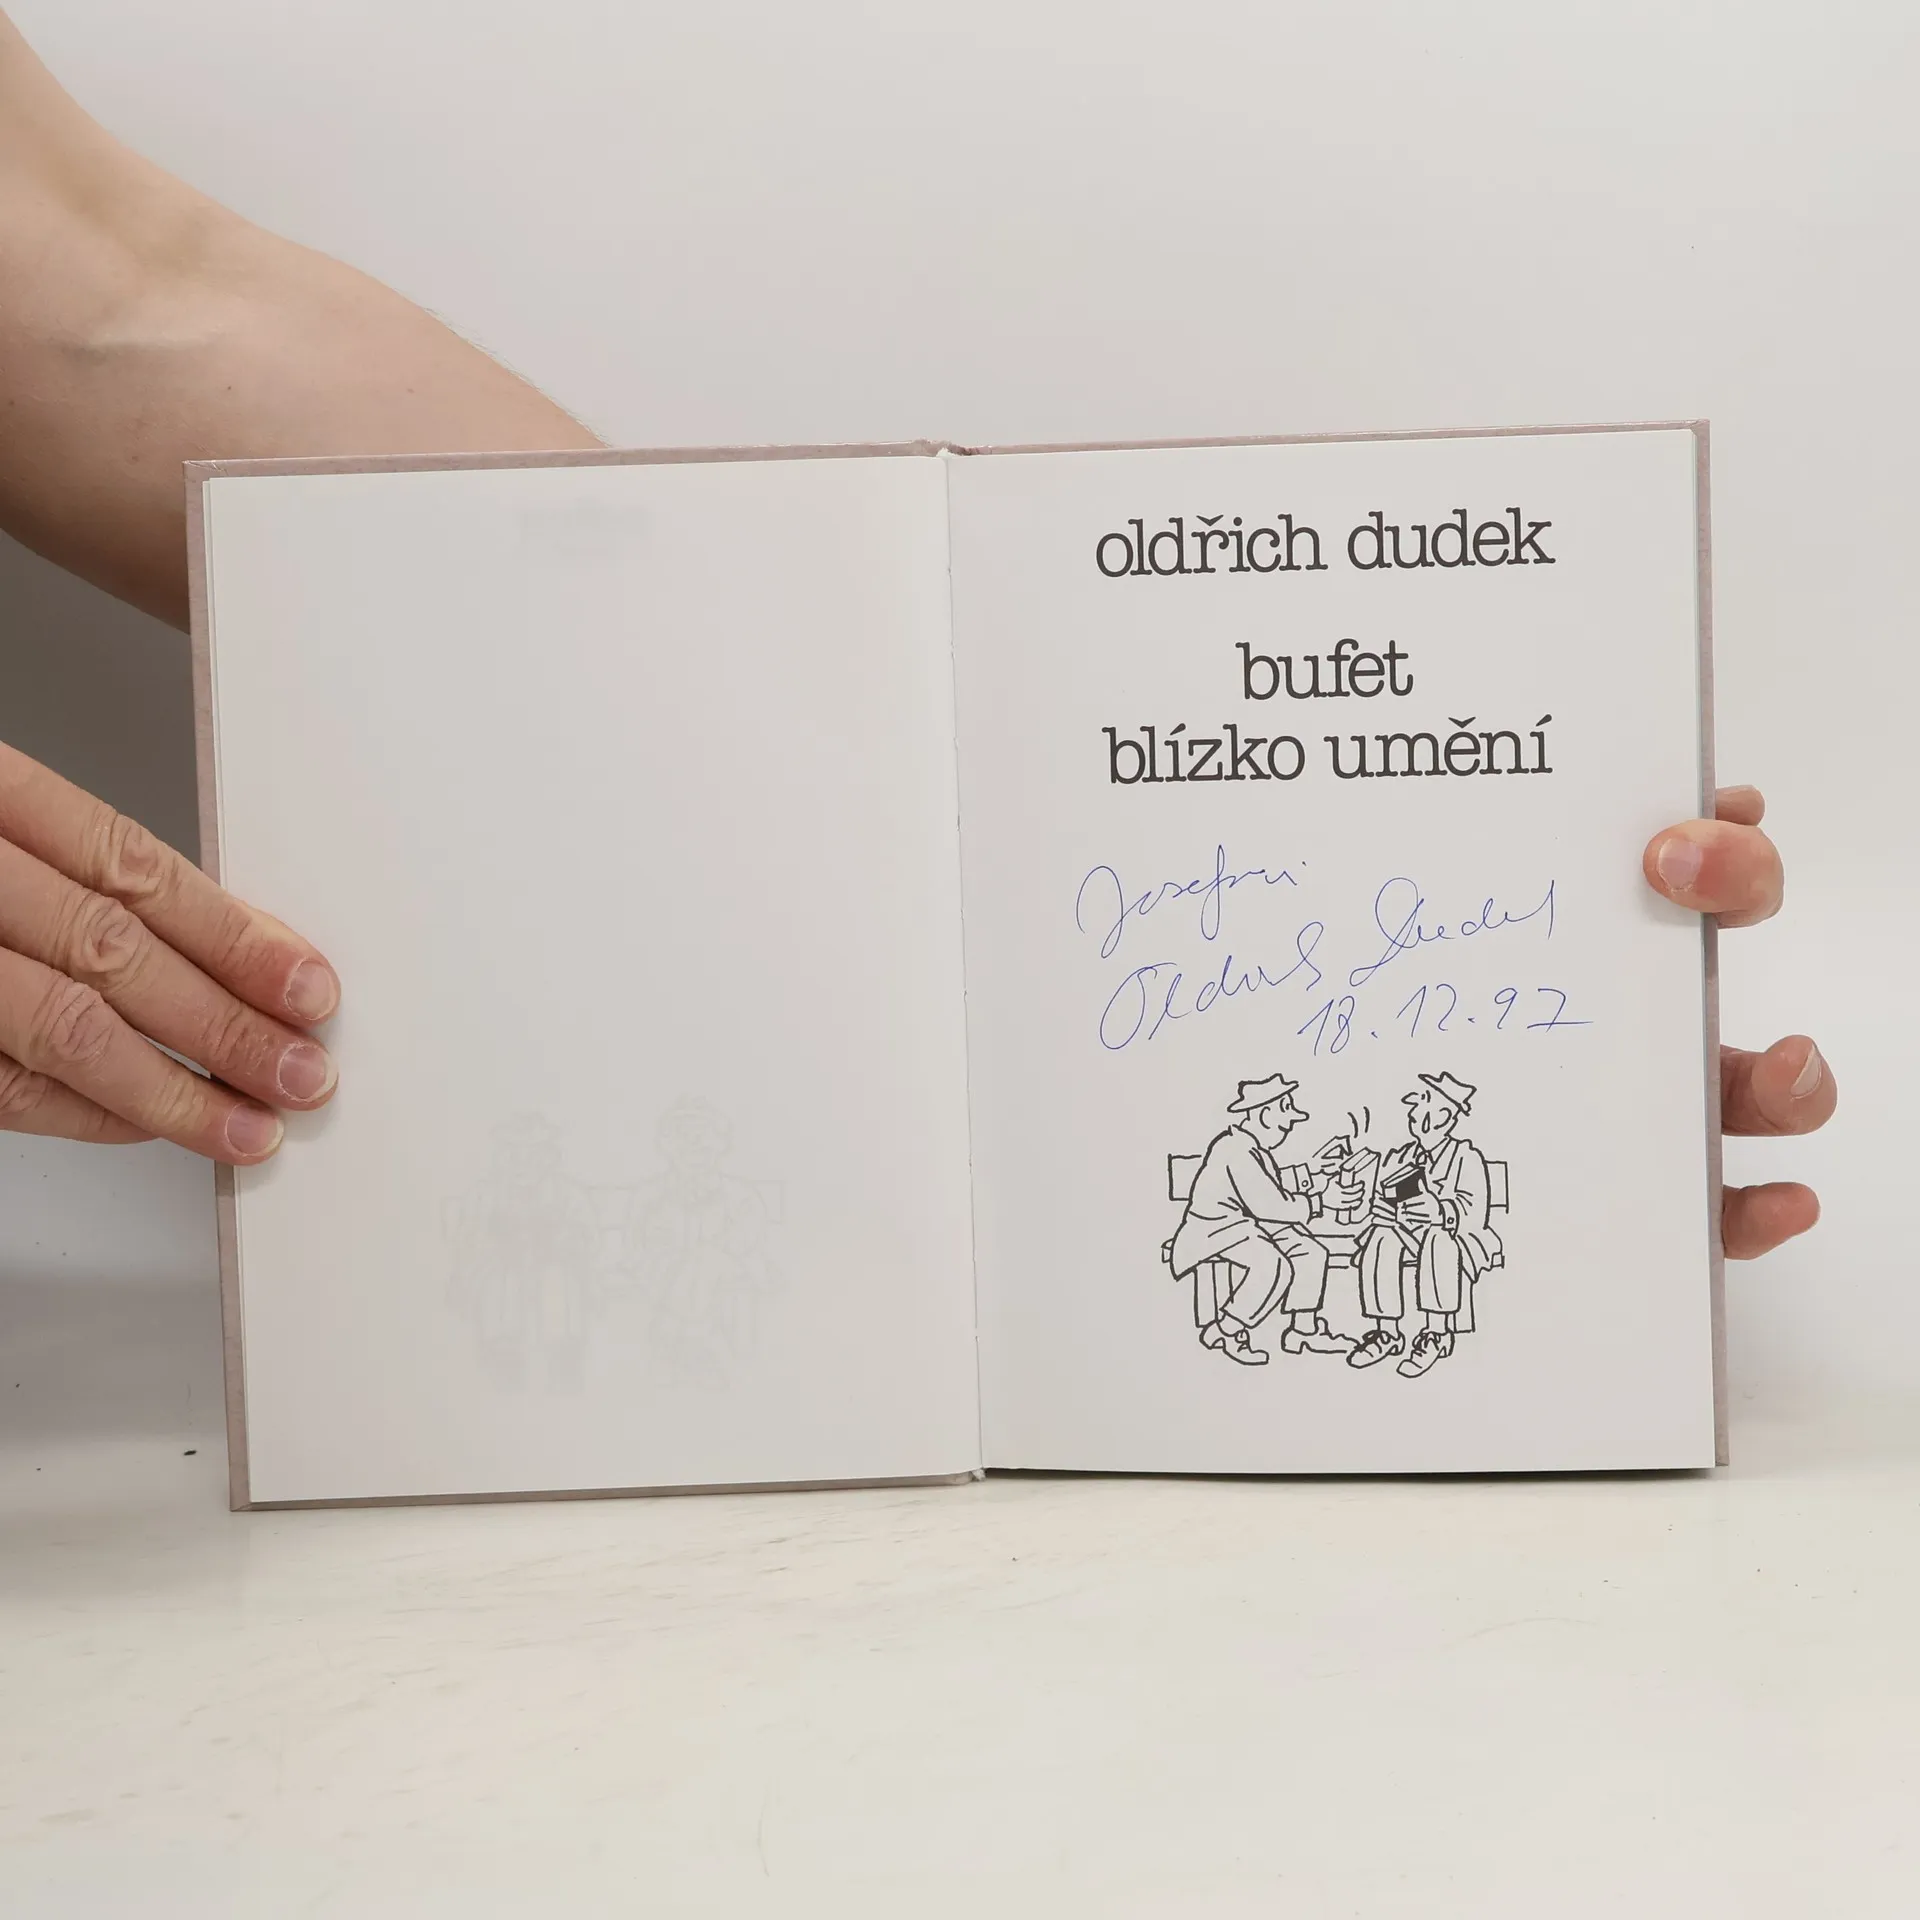 oldřich dudek
bufet
blízko umění
Josefovi
Oldřich Dudek
18.12.97